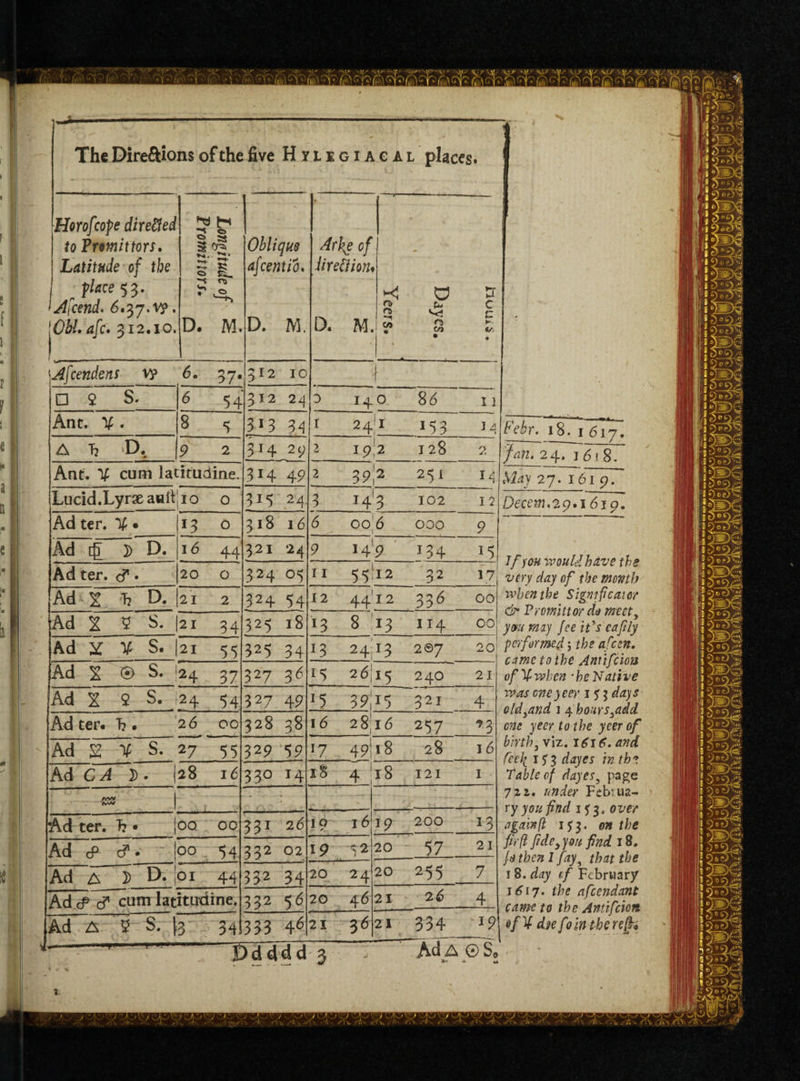 The Directions of the five HYLEGIACAL places.
Horoscope directed to Promittors. Latitude of the place 53. Ascend. 6.37.♑. Obl. asc. 312.10. | Longitude of Promittors. D. M. | Obliqus ascentio. D. M. | Arke of direction. D. M. | Yeers. | Dayes. | Hours.
Ascendens ♑ 6. 37. 312 10
□ ♀ S. 6 54 312 24 0 14 0 86 11
Ant. ♃. 8 5 313 34 1 24 1 153 14 Febr. 18. 1617.
△ ♄ D. 9 2 314 29 2 19 2 128 2 Jan. 24. 1618.
Ant. ♃ cum latitudine. 314 49 2 39 2 251 14 May 27. 1619.
Lucid.Lyræ auſt 10 0 315 24 3 14 3 102 12 Decem.29.1619.
Ad ter. ♃. 13 0 318 16 6 00 6 000 9
Ad ☽ D. 16 44 321 24 9 14 9 134 15
Ad ter. ♂. 20 0 324 05 11 55 12 32 17
Ad ♄ D. 21 2 324 54 12 44 12 336 00
Ad ☿ S. 21 34 325 18 13 8 13 114 00
Ad ♃ S. 21 55 325 34 13 24 13 207 20
Ad ☉ S. 24 37 327 36 15 26 15 240 21
Ad ♀ S. 24 54 327 49 15 39 15 321 4
Ad ter. ♄. 26 00 328 38 16 28 16 257 23
Ad ♃ S. 27 55 329 59 17 49 18 28 16
Ad CA ☽. 28 16 330 14 18 4 18 121 1
♒
Ad ter. ♄. 00 00 331 26 19 16 19 200 13
Ad ☍ ♂. 00 54 332 02 19 52 20 57 21
Ad △ ☽ D. 01 44 332 34 20 24 20 255 7
Ad ☍ ♂ cum latitudine. 332 56 20 46 21 26 4
Ad △ ☿ S. 3 34 333 46 21 36 21 334 19
If you would have the
very day of the month
when the Significator
& Promittor do meet,
you may ſee it's eaſily
performed; the aſcen.
came to the Antiſcion
of ♃ when the Native
was one yeer 153 days
old, and 14 hours, add
one yeer to the yeer of
birth, viz. 1616. and
ſeek 153 dayes in the
Table of dayes, page
722. under Februa-
ry you find 153. over
againſt 153. on the
firſt ſide, you find 18.
ſo then I ſay, that the
18. day of February
1617. the aſcendant
came to the Antiſcion
of ♃ doe ſo in the reſt.
Ddddd 3 Ad △ ☉ S.